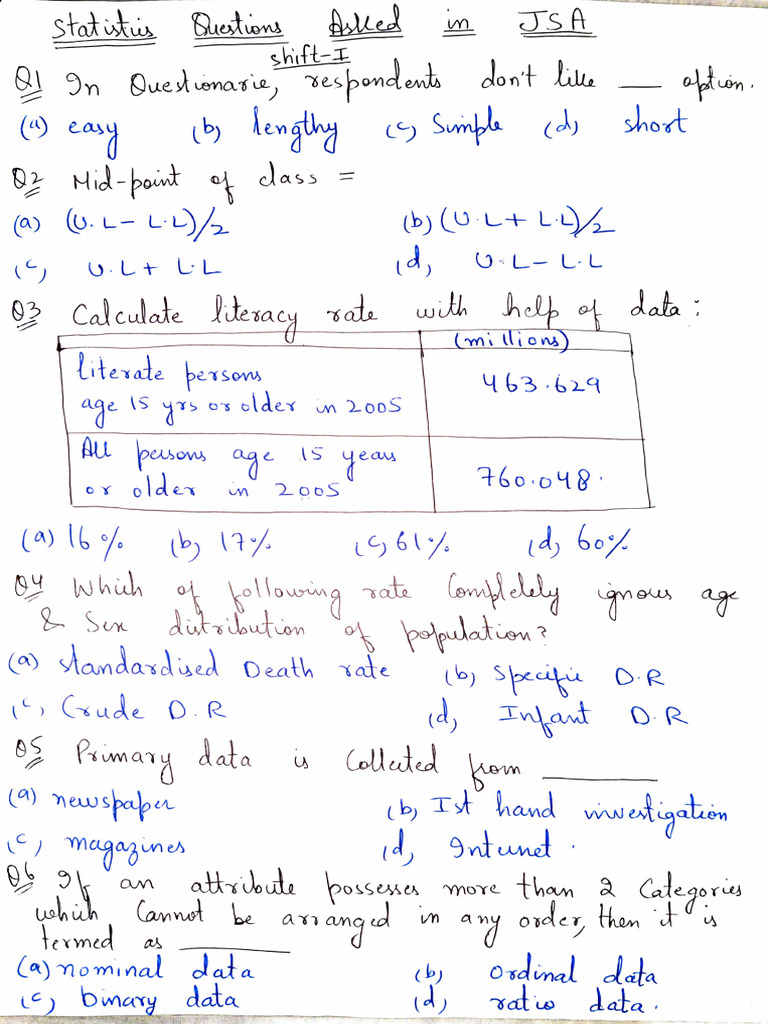 Statistics Questions Asked in JSA
shift-I
Q1 In Questionarie, respondents don't like ___ option.
(a) easy (b) lengthy (c) Simple (d) short
Q2 Mid-point of class =
(a) (U.L - L.L)/2 (b) (U.L + L.L)/2
(c) U.L + L.L (d) U.L - L.L
Q3 Calculate literacy rate with help of data:
(millions)
literate persons
age 15 yrs or older in 2005
463.629
All persons age 15 years
or older in 2005
760.048.
(a) 16% (b) 17% (c) 61% (d) 60%
Q4 Which of following rate Completely ignous age
& Sex distribution of population?
(a) Standardised Death rate (b) Specific D.R
(c) Crude D.R (d) Infant D.R
Q5 Primary data is Collected from ________
(a) newspaper (b) Ist hand investigation
(c) magazines (d) Internet.
Q6 If an attribute possesses more than 2 Categories
which Cannot be arranged in any order, then it is
termed as ________
(a) nominal data (b) ordinal data
(c) binary data (d) ratio data.